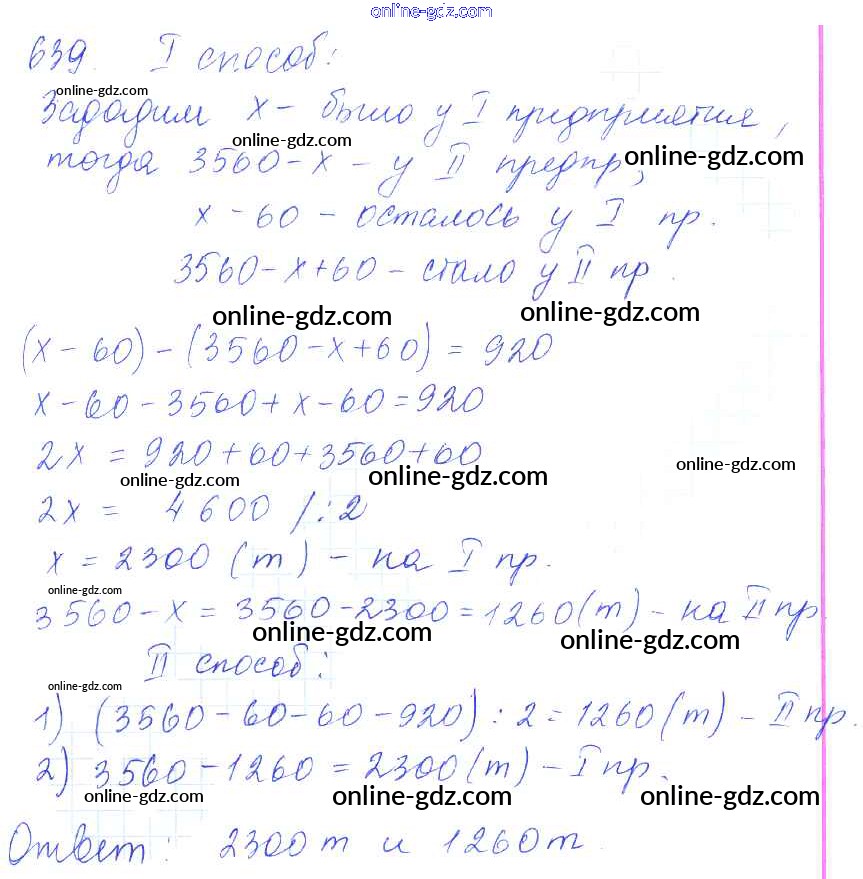 online-gdz.com
639. I способ:
online-gdz.com
Зададим x - было у I предприятия,
online-gdz.com
тогда 3560-x - у II предпр,
online-gdz.com
x - 60 - осталось у I пр.
3560-x+60 - стало у II пр.
online-gdz.com online-gdz.com
(x - 60) - (3560-x+60) = 920
x - 60 - 3560 + x - 60 = 920
2x = 920 + 60 + 3560 + 60
online-gdz.com online-gdz.com online-gdz.com
2x = 4600 /:2
x = 2300 (т) - на I пр.
online-gdz.com
3560 - x = 3560 - 2300 = 1260 (т) - на II пр
online-gdz.com online-gdz.com
II способ:
online-gdz.com
1) (3560 - 60 - 60 - 920) : 2 = 1260 (т) - II пр.
2) 3560 - 1260 = 2300 (т) - I пр.
online-gdz.com online-gdz.com online-gdz.com
Ответ: 2300 т и 1260 т